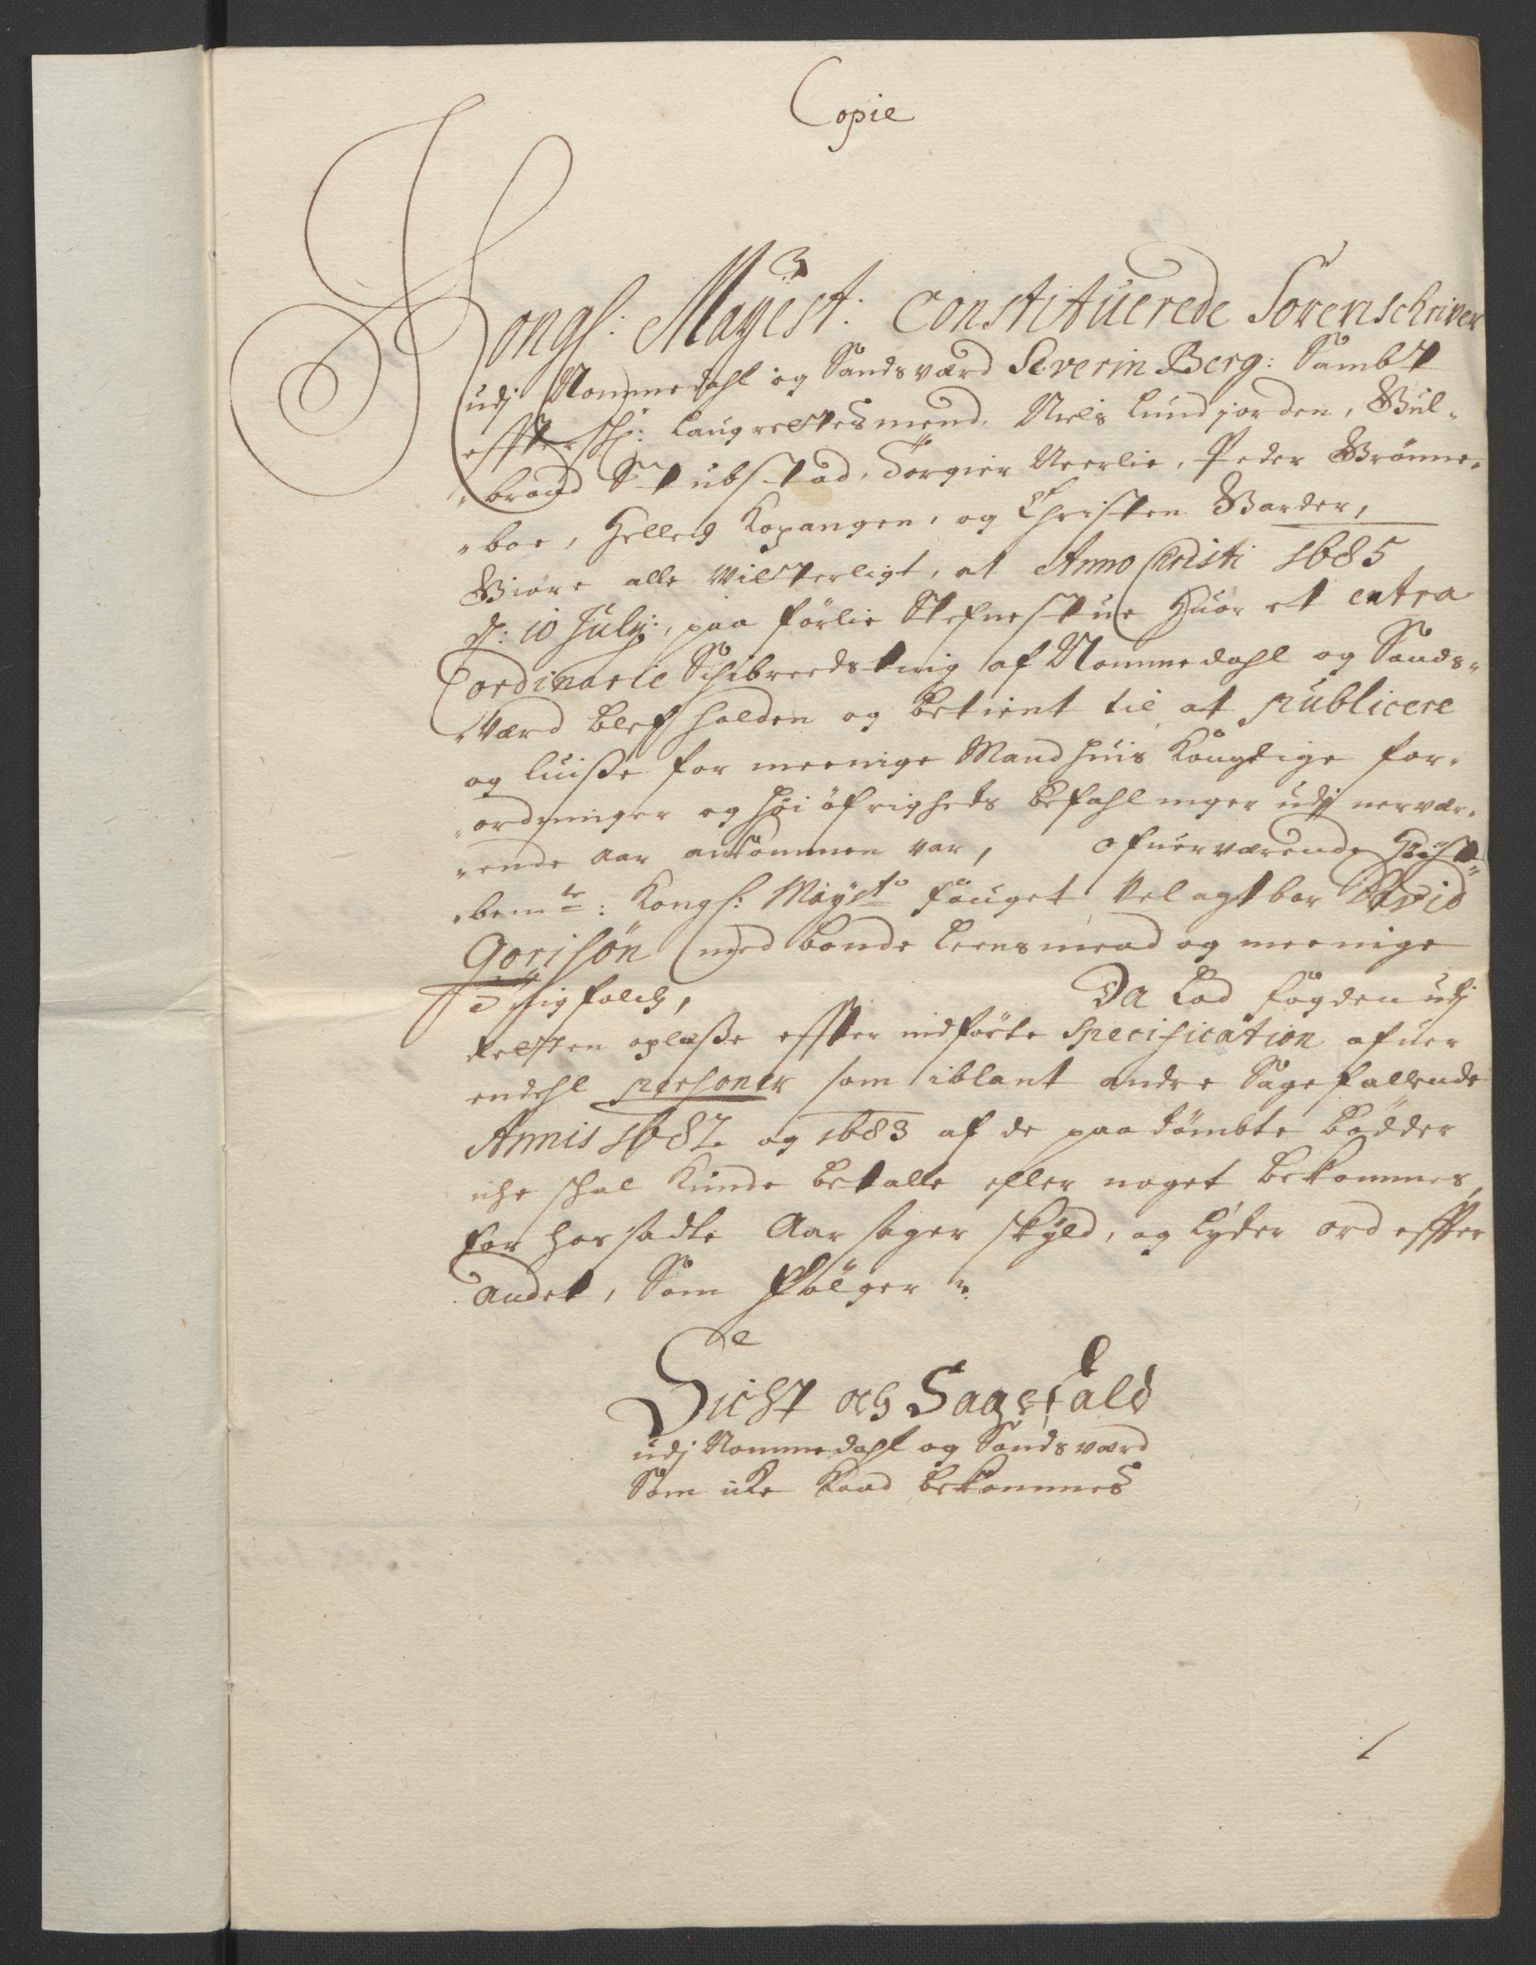 Copie
Kongl: Mayest: Constituerede Sorenschriver
udj Nommedahl og Sandsværd Severin Berg: Sambt
effterschr: Laugrettesmend, Niels Lundjorden, Gul-
brand Stubstad, Torgier Neerlie, Peder Brønne-
boe, Helleg Kopangen, og Christen Barder,
Giøre alle vitterligt, at Anno Christi 1685
d: 10 July:, paa førlie Stefnestue huor et extra
ordinarie Schibreedsting af Nommedahl og Sands-
værd blef holden og betient til at publicere
og luiße for meenige Mand huis Kongelige for-
ordninger og høi øfrigheds befahlinger udj nervær-
ende aar ankommen var, ofuerværende
bemte: Kongl: Mayst: fouget Velagtbar David
Gorisøn med bonde Leensmend og meenige
Tingfolch, Da Lod fogden udj
Retten oplæße effter indførte Specification ofuer
endehl personer som iblant andre Sagefallende
Annis 1682 og 1683 af de paadømbte bødder
iche schal kunde betalle eller noget bekommes,
for hossadte Aarsager skyld, og lyder ord effter
andet, Som følger
Sicht och Sagefald
udj Nommedahl og Sandsværd
Som icke Kand bekommes
1